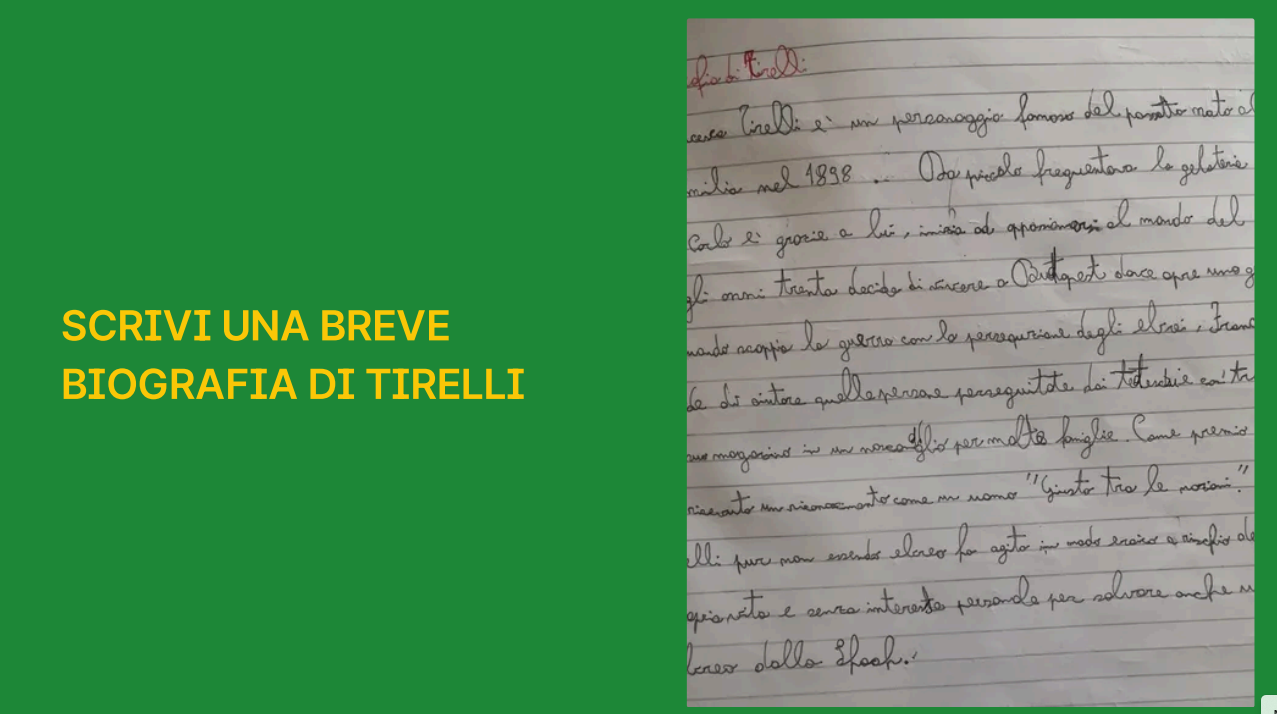 SCRIVI UNA BREVE
BIOGRAFIA DI TIRELLI
fia di Tirelli
Tirelli è un personaggio famoso del passato nato a
milia nel 1898 ... Da piccolo frequentava la gelateria
Carlo e grazie a lui, inizia ad al mondo del
gli anni trenta decide di vivere a Budapest dove apre una g
uando scoppia la guerra con la persequzione degli ebrei, Franc
de di aiutare quelle persone perseguitate dai così tr
suo magazzino in un per molte famiglie. Come premio
ricevuto un riconoscimento come un uomo "Giusto tra le nazioni."
elli pur non essendo ebreo ha agito in modo eroico a rischio de
opria vita e senza interesse personale per salvare anche u
breo dalla Shoah.